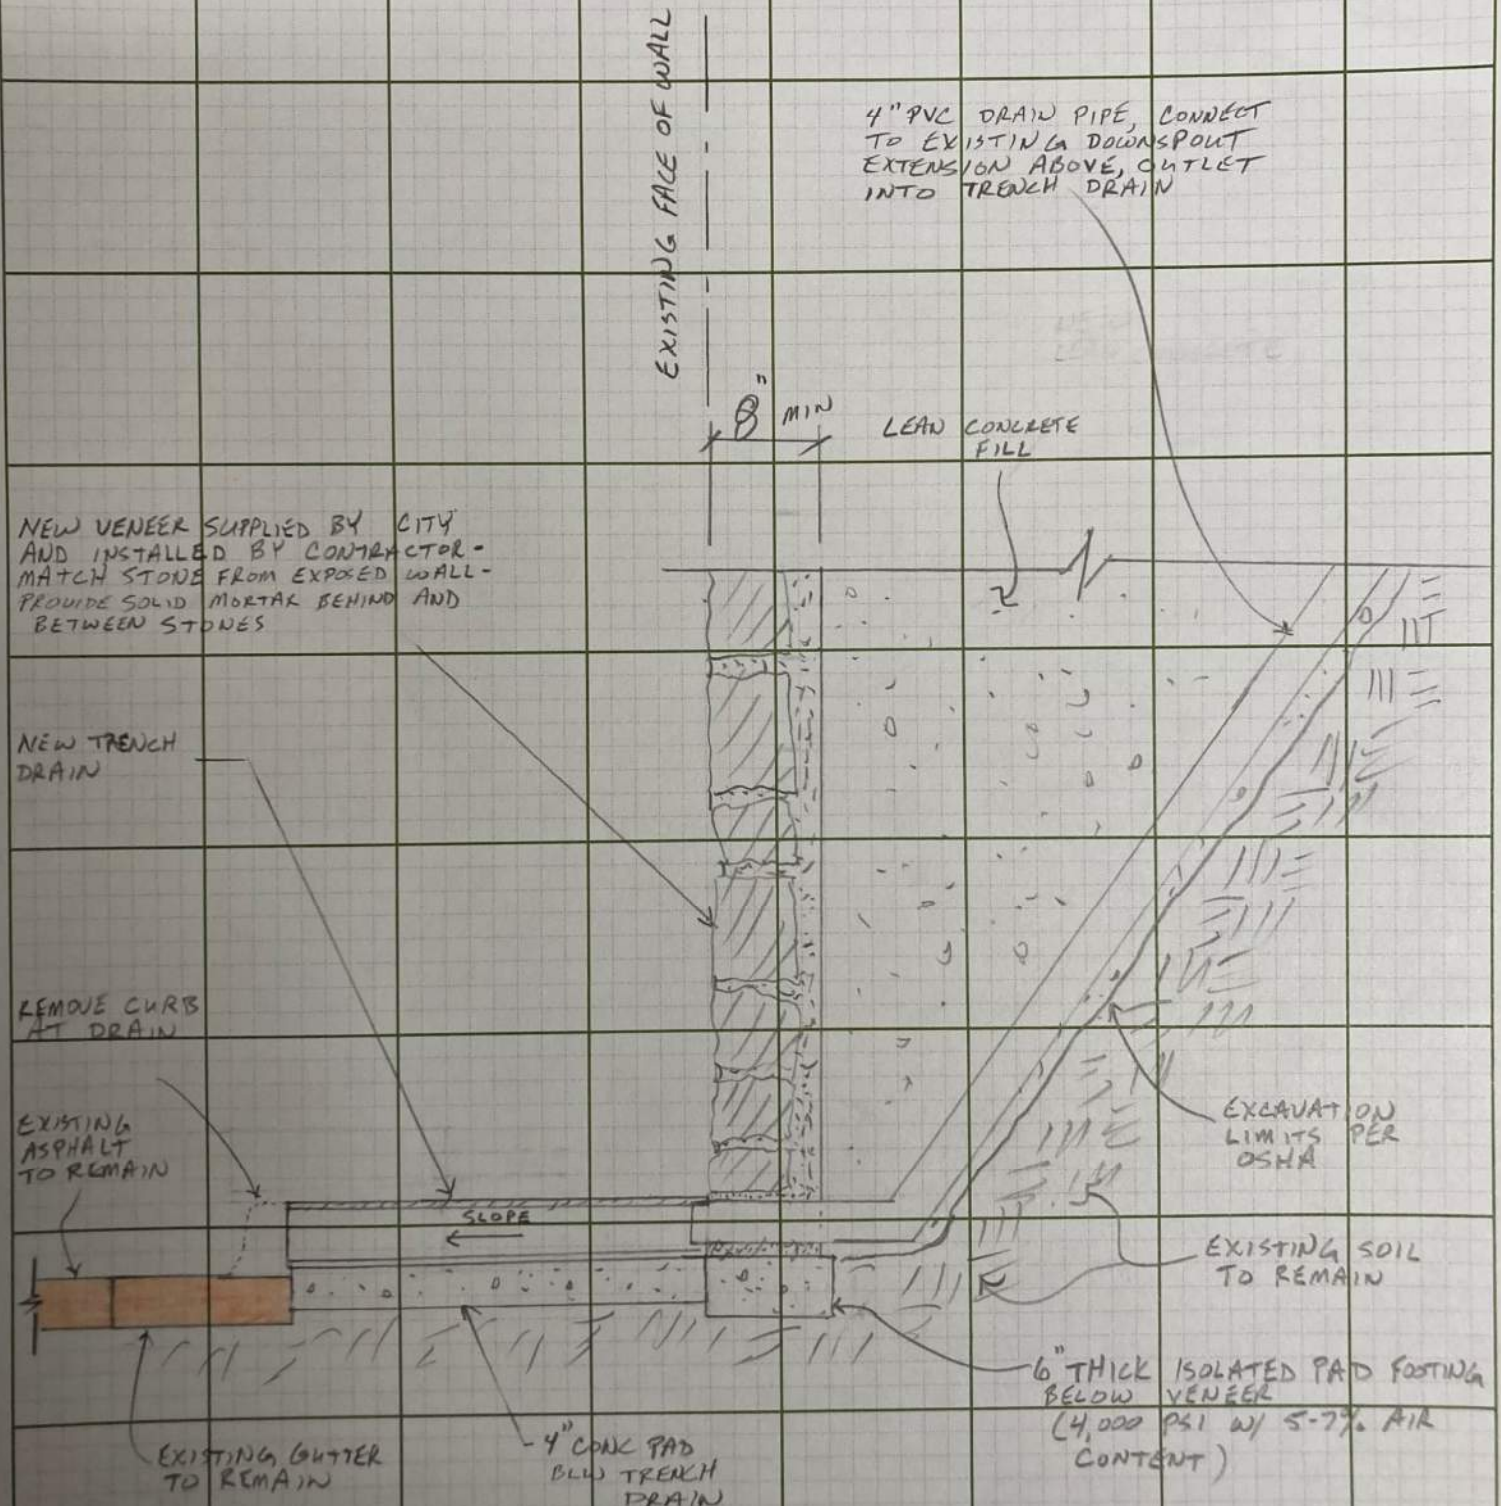 EXISTING FACE OF WALL
4" PVC DRAIN PIPE, CONNECT
TO EXISTING DOWNSPOUT
EXTENSION ABOVE, OUTLET
INTO TRENCH DRAIN
8" MIN
LEAN CONCRETE
FILL
NEW VENEER SUPPLIED BY CITY
AND INSTALLED BY CONTRACTOR-
MATCH STONE FROM EXPOSED WALL-
PROVIDE SOLID MORTAR BEHIND AND
BETWEEN STONES
NEW TRENCH
DRAIN
REMOVE CURB
AT DRAIN
EXISTING
ASPHALT
TO REMAIN
SLOPE
EXCAVATION
LIMITS PER
OSHA
EXISTING SOIL
TO REMAIN
6" THICK ISOLATED PAD FOOTING
BELOW VENEER
(4,000 PSI W/ 5-7% AIR
CONTENT)
EXISTING GUTTER
TO REMAIN
4" CONC PAD
BLW TRENCH
DRAIN